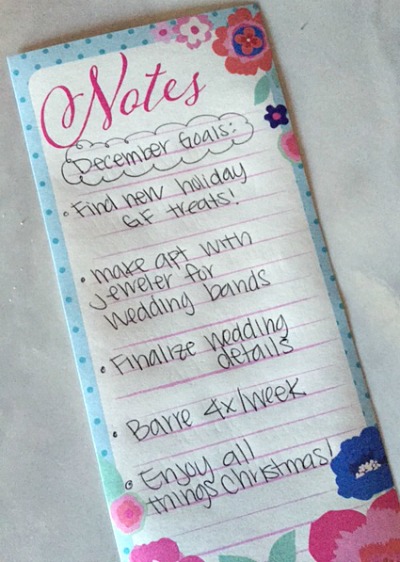 Notes
December Goals:
• Find new holiday
GF treats!
• make apt with
jeweler for
wedding bands
• Finalize wedding
details
• Barre 4x/week
• Enjoy all
things Christmas!